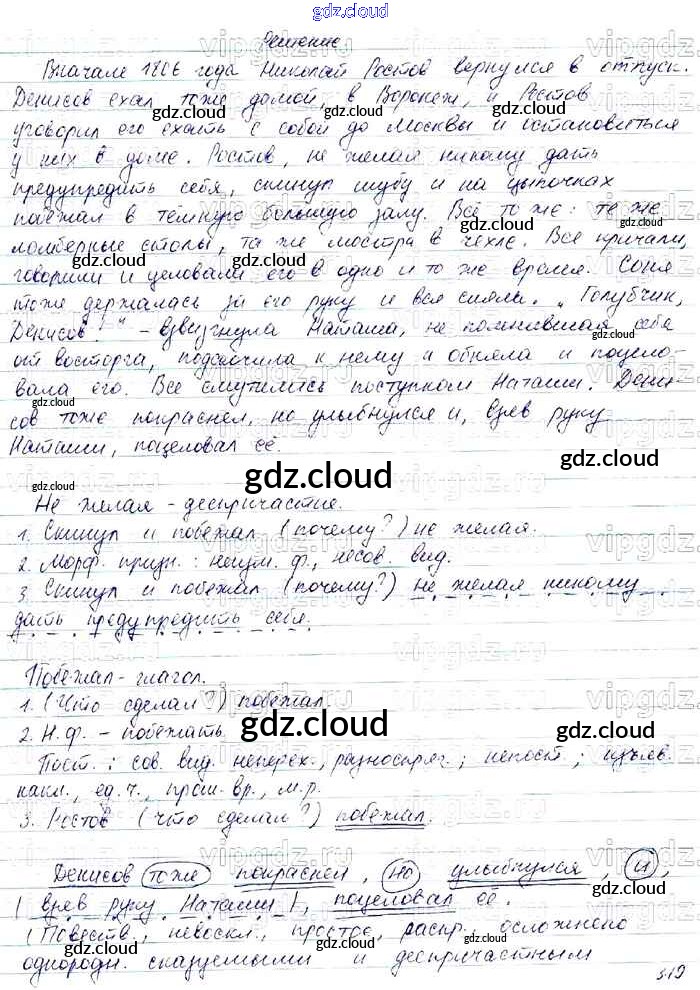 gdz.cloud
Решение
Вначале 1806 года Николай Ростов вернулся в отпуск.
Денисов ехал тоже домой, в Воронеж, и Ростов
уговорил его ехать с собой до Москвы и остановиться
у них в доме. Ростов, не желая никому дать
предупредить себя, скинул шубу и на цыпочках
побежал в тёмную большую залу. Всё то же: те же
ломберные столы, та же люстра в чехле. Все кричали,
говорили и целовали его в одно и то же время. Соня
тоже держалась за его руку и вся сияла. „Голубчик,
Денисов!" - взвизгнула Наташа, не помнившая себя
от восторга, подскочила к нему и обняла и поцело-
вала его. Все смутились поступком Наташи. Дени-
сов тоже покраснел, но улыбнулся и, взяв руку
Наташи, поцеловал её.
gdz.cloud
Не желая - деепричастие.
1. Скинул и побежал (почему?) не желая.
2. Морф. призн.: неизм. ф., несов. вид.
3. Скинул и побежал (почему?) не желая никому
дать предупредить себя.
Побежал - глагол.
1. (Что сделал?) побежал.
2. Н.ф. - побежать.
gdz.cloud
Пост.: сов. вид. неперех., разноспряг.; непост.; изъяв.
накл., ед.ч., прош. вр., м.р.
3. Ростов (что сделал?) побежал.
Денисов тоже покраснел, но улыбнулся, и,
| взяв руку Наташи |, поцеловал её.
(Повеств., невоскл., простое, распр., осложнено
однородн. сказуемыми и деепричастным
319